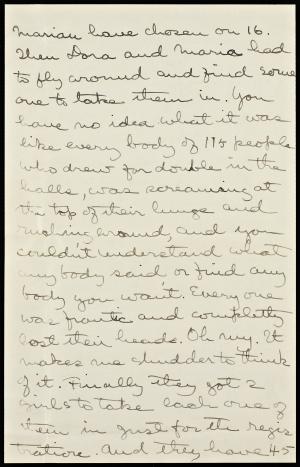 Marian have chosen on 16.
Then Dora and Maria had
to fly around and find some
one to take them in. You
have no idea what it was
like every body of 115 people
who drew for double in the
halls, was screaming at
the top of their lungs and
rushing around, and you
couldn't understand what
any body said or find any
body you want. Every one
was frantic and completly
lost their heads. Oh my. It
makes me shudder to think
of it. Finally they got 2
girls to take each one of
them in just for the regis
tration. And they have 45